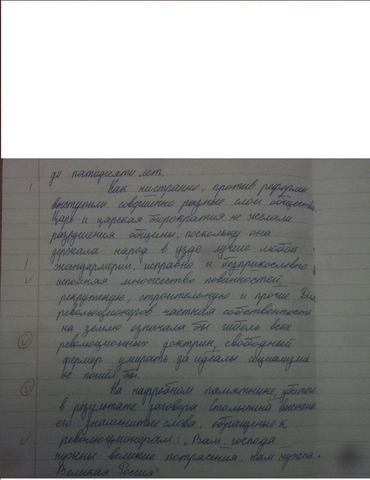 до пятидесяти лет.
Как ни странно, против реформы
выступили совершенно разные слои общества.
Царь и царская бюрократия не желали
разрушения общины, поскольку она
держала народ в узде лучше любой
жандармерии, исправно и беспрекословно
исполняя множество повинностей,
рекрутскую, строительную и прочие. Для
революционеров частная собственность
на землю означала бы гибель всех
революционных доктрин, свободный
фермер умирать за идеалы социализма
не пошел бы.
На надгробном памятнике, убитого
в результате заговора Столыпина высечены
его знаменитые слова, обращенные к
революционерам: „Вам господа
нужны великие потрясения. Нам нужна
Великая Россия".